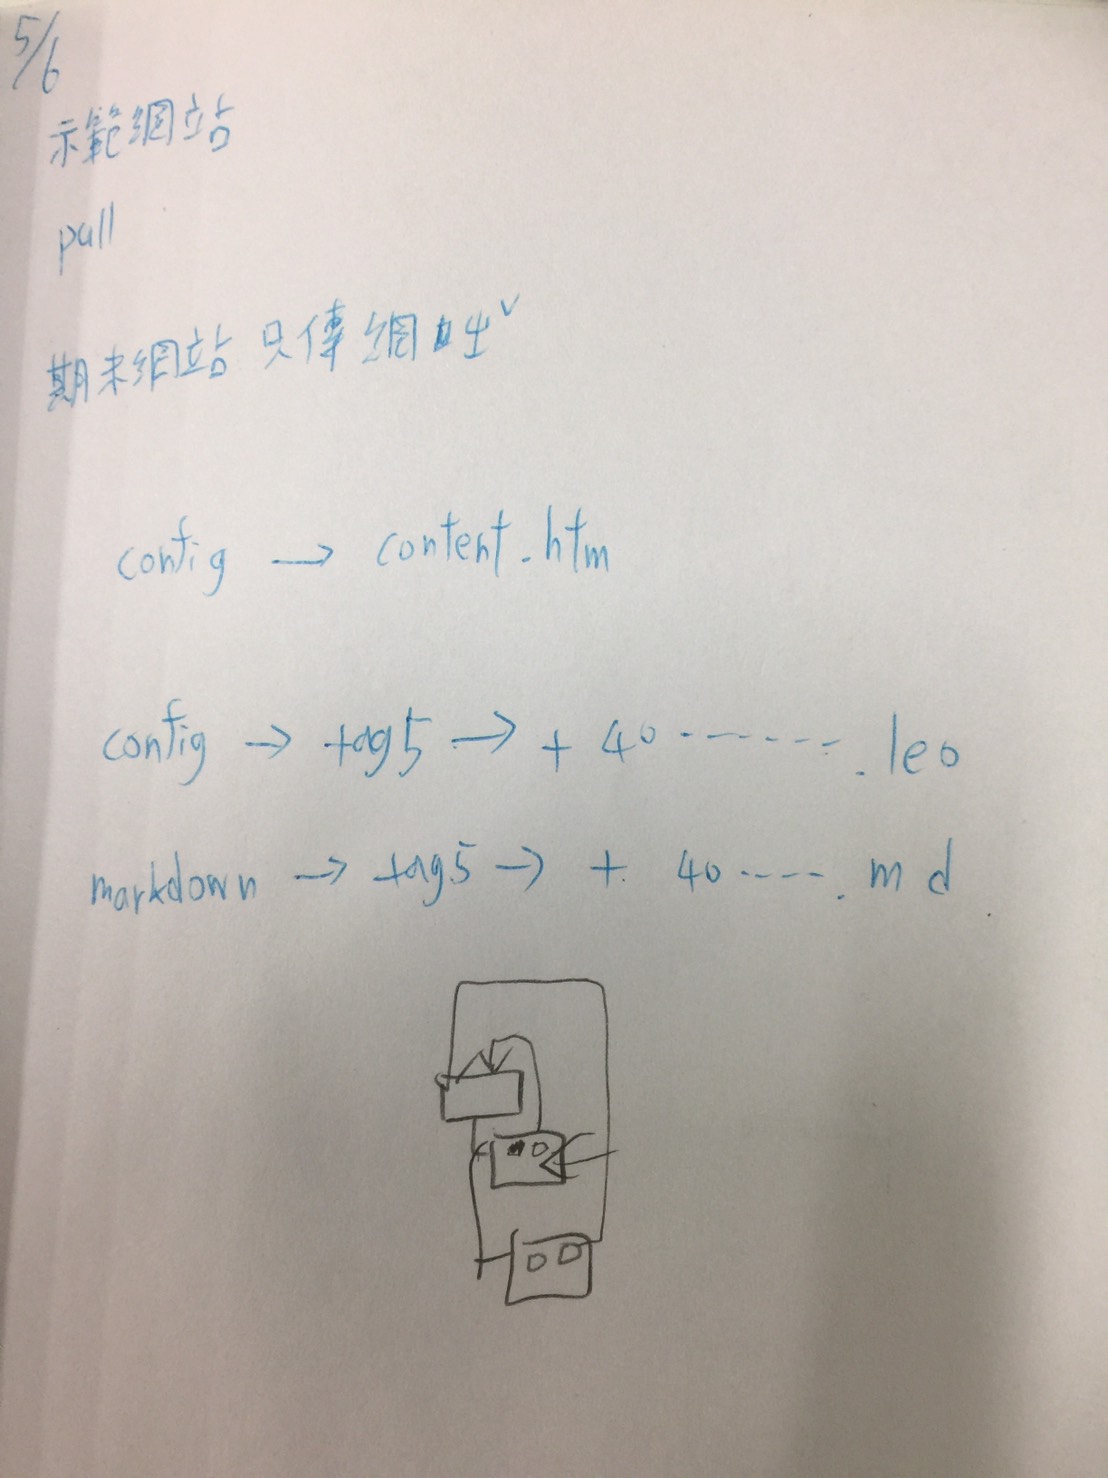 5/6
示範網站
pull
期末網站 只傳網址
config → content.htm
config → tag5 → + 40 ------- .leo
markdown → tag5 → + 40 ----- .md